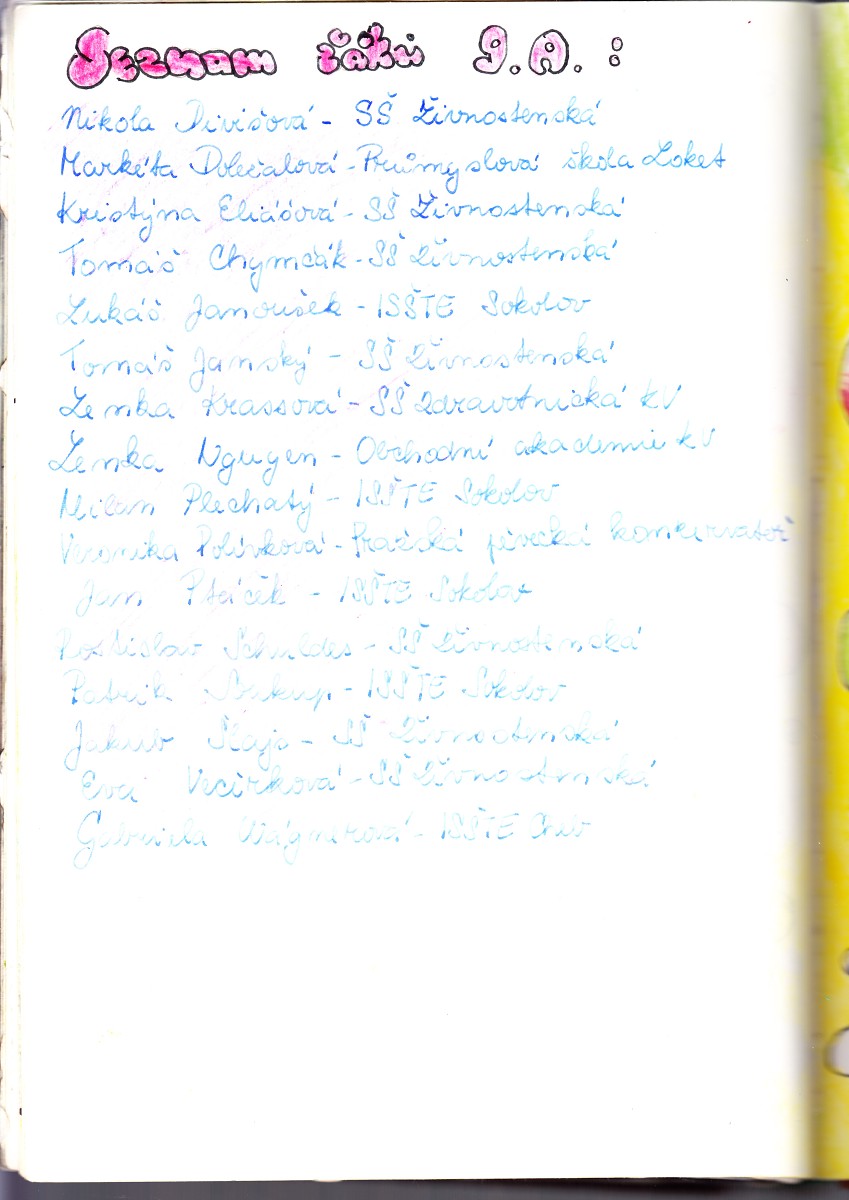 Seznam žáků 9.A. :
Nikola Divišová - SŠ Živnostenská
Markéta Dolečalová - Průmyslová škola Loket
Kristýna Eliášová - SŠ Živnostenská
Tomáš Chymčák - SŠ Živnostenská
Lukáš Janoušek - ISŠTE Sokolov
Tomáš Janský - SŠ Živnostenská
Lenka Krassová - SŠ Zdravotnická KV
Lenka Nguyen - Obchodní akademie KV
Milan Plechatý - ISŠTE Sokolov
Veronika Polívková - Pražská pěvecká konzervatoř
Jan Ptáček - ISŠTE Sokolov
Rostislav Schuldes - SŠ Živnostenská
Patrik Soukup - ISŠTE Sokolov
Jakub Šlajs - SŠ Živnostenská
Eva Vecirková - SŠ Živnostenská
Gabriela Wágnerová - ISŠTE Cheb